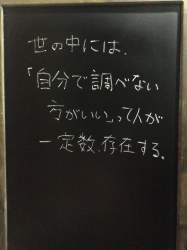 世の中には、
「自分で調べない
方がいい」って人が
一定数、存在する。